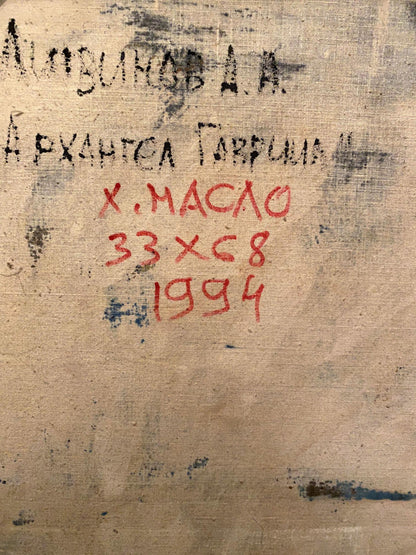 Литвинов А.А.
Архангел Гавриил
Х. МАСЛО
33х68
1994